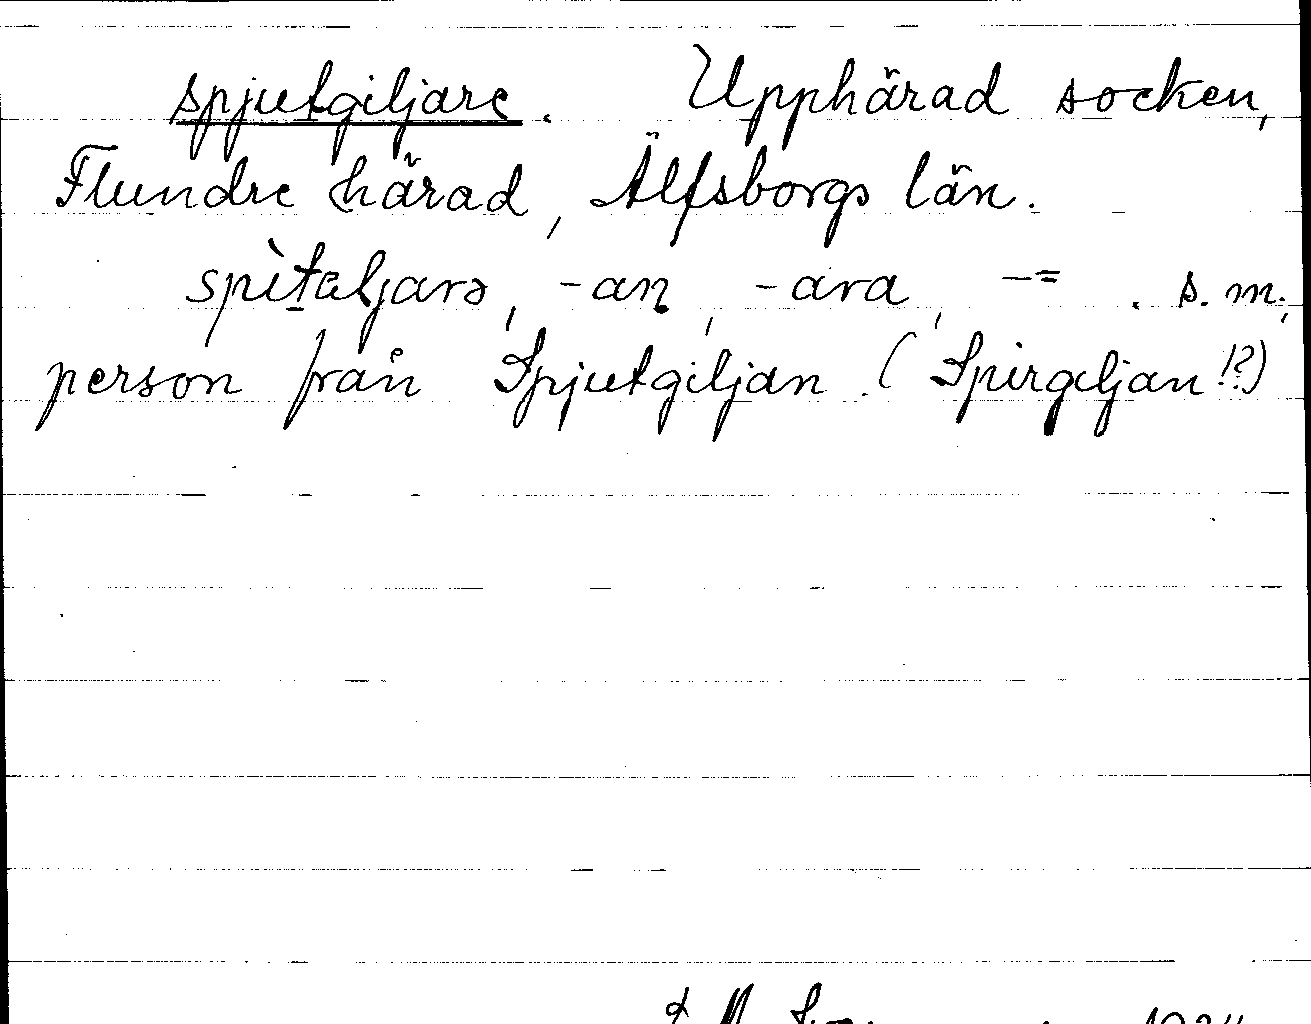 spjutgiljare. Upphärad socken,
Flundre härad, Älfsborgs län.
spìtaljarə, -an, -ara, -=. s. m.;
person från Spjutgiljan. (Spirgiljan!?)